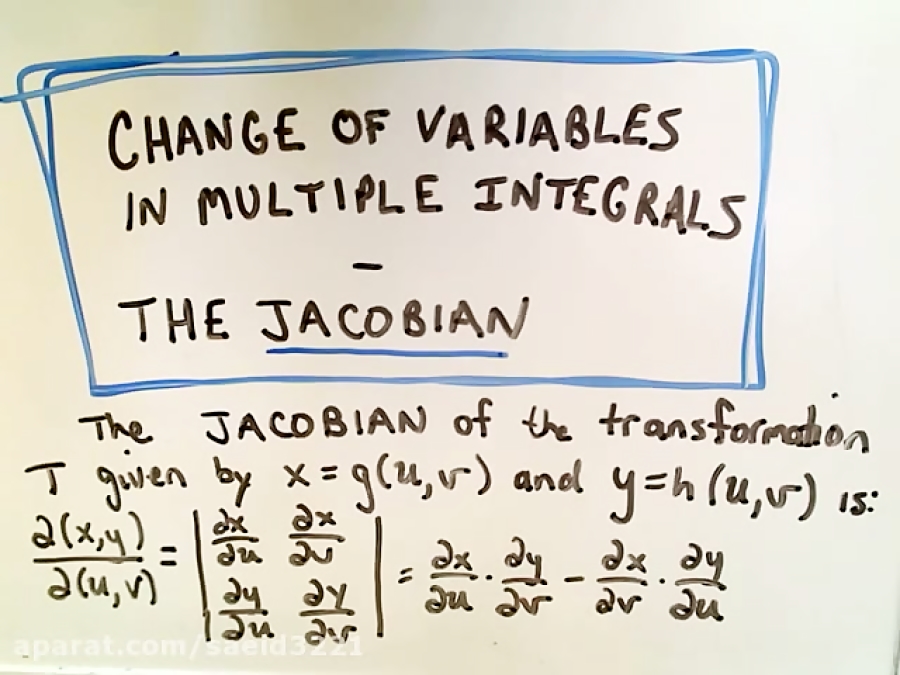 CHANGE OF VARIABLES
IN MULTIPLE INTEGRALS
-
THE JACOBIAN
The JACOBIAN of the transformation
T given by x = g(u,v) and y = h(u,v) is:
∂(x,y)/∂(u,v) = | ∂x/∂u ∂x/∂v ; ∂y/∂u ∂y/∂v | = ∂x/∂u · ∂y/∂v - ∂x/∂v · ∂y/∂u
aparat.com/saeid3221